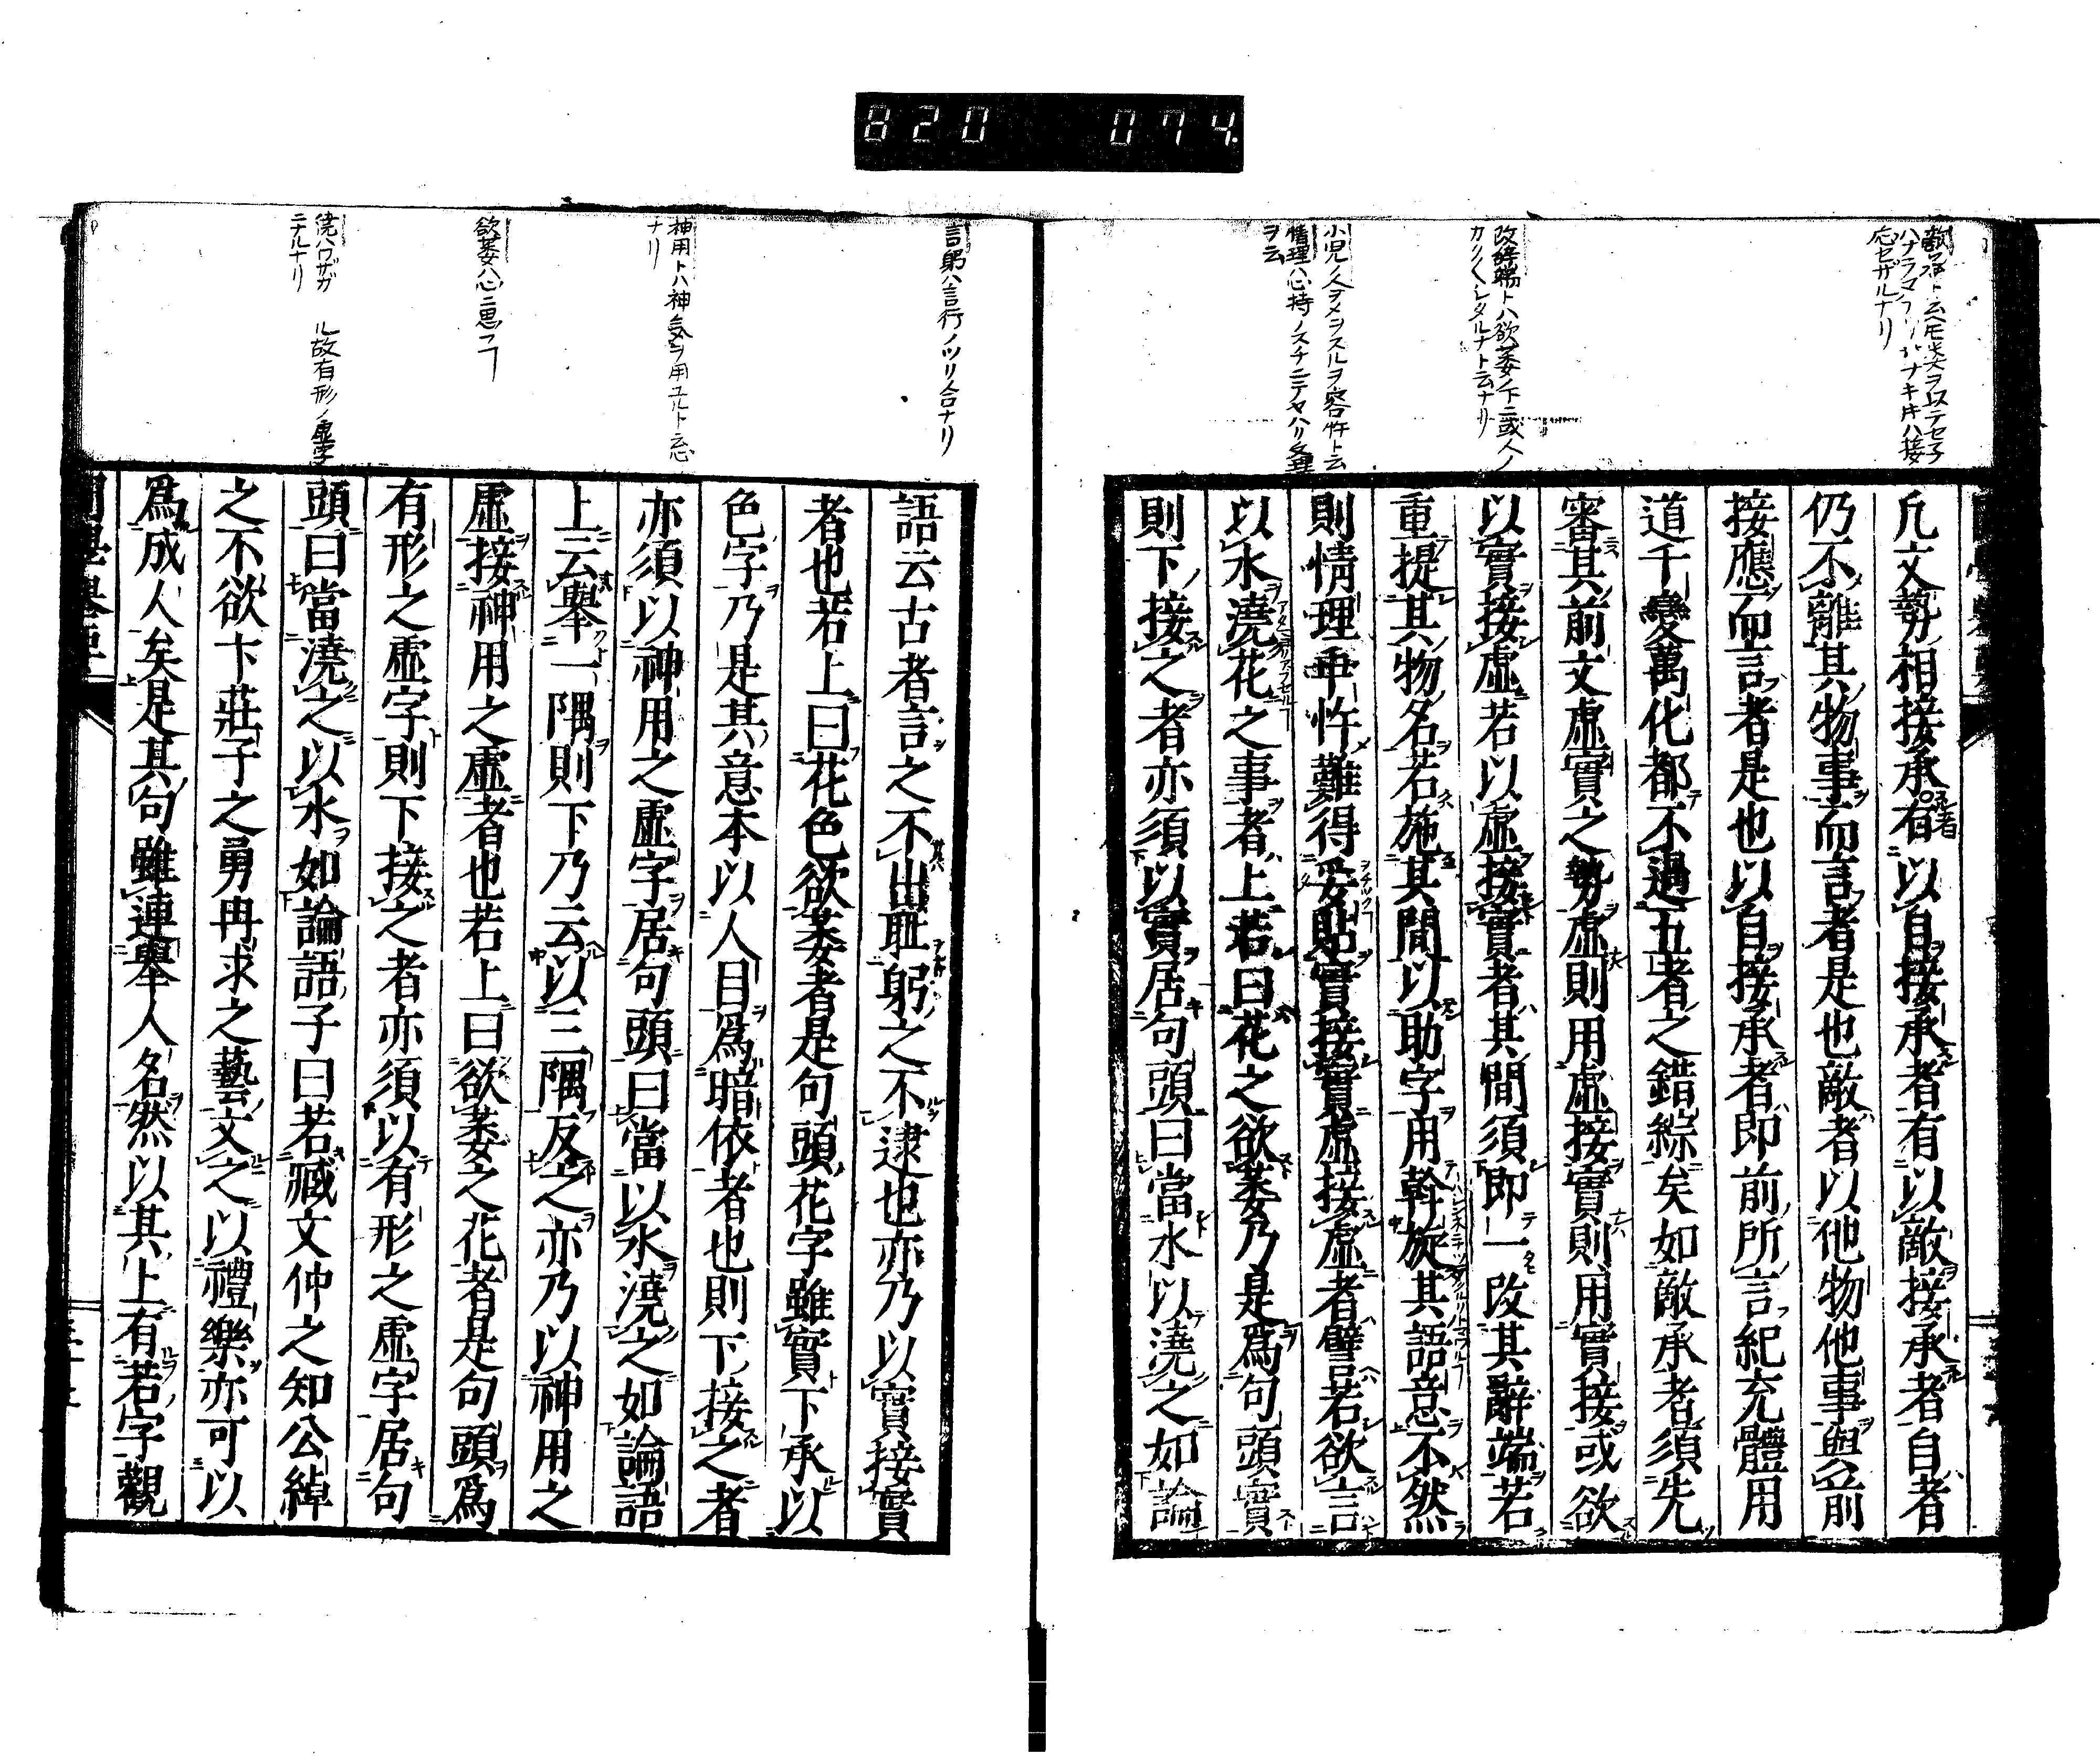 820 074
凡文勢相接承有以自接承者有以敵接承者自者
仍不離其物事而言者是也敵者以他物他事與前
接應而言者是也以自接承者即前所言紀充體用
道千變萬化都不過五者之錯綜矣如敵承者須先
審其前文虛實之勢虛則用虛接實則用實接或欲
以實接虛若以虛接實者其間須即一改其辭端若
重提其物名若施其間以助字用斡旋其語意不然
則情理乖忤難得妥貼實接實虛接虛者譬若欲言
以水澆花之事者上若曰花之欲萎乃是爲句頭實
則下接之者亦須以實居句頭曰當水以澆之如論
語云古者言之不出耻躬之不逮也亦乃以實接實
者也若上曰花色欲萎者是句頭花字雖實下承以
色字乃是其意本以人目爲暗依者也則下接之者
亦須以神用之虛字居句頭曰當以水澆之如論語
上云舉一隅則下乃云以三隅反之亦乃以神用之
虛接神用之虛者也若上曰欲萎之花者是句頭爲
有形之虛字則下接之者亦須以有形之虛字居句
頭曰當澆之以水如論語子曰若臧文仲之知公綽
之不欲卞莊子之勇冉求之藝文之以禮樂亦可以
爲成人矣是其句雖連舉人名然以其上有若字觀
言躬ハ言行ノツリ合ナリ
神用トハ神氣ヲ用ユルト云
ナリ
欲萎ハ心ニ思フヿ
ル故有形ノ虛字
ニナルナリ